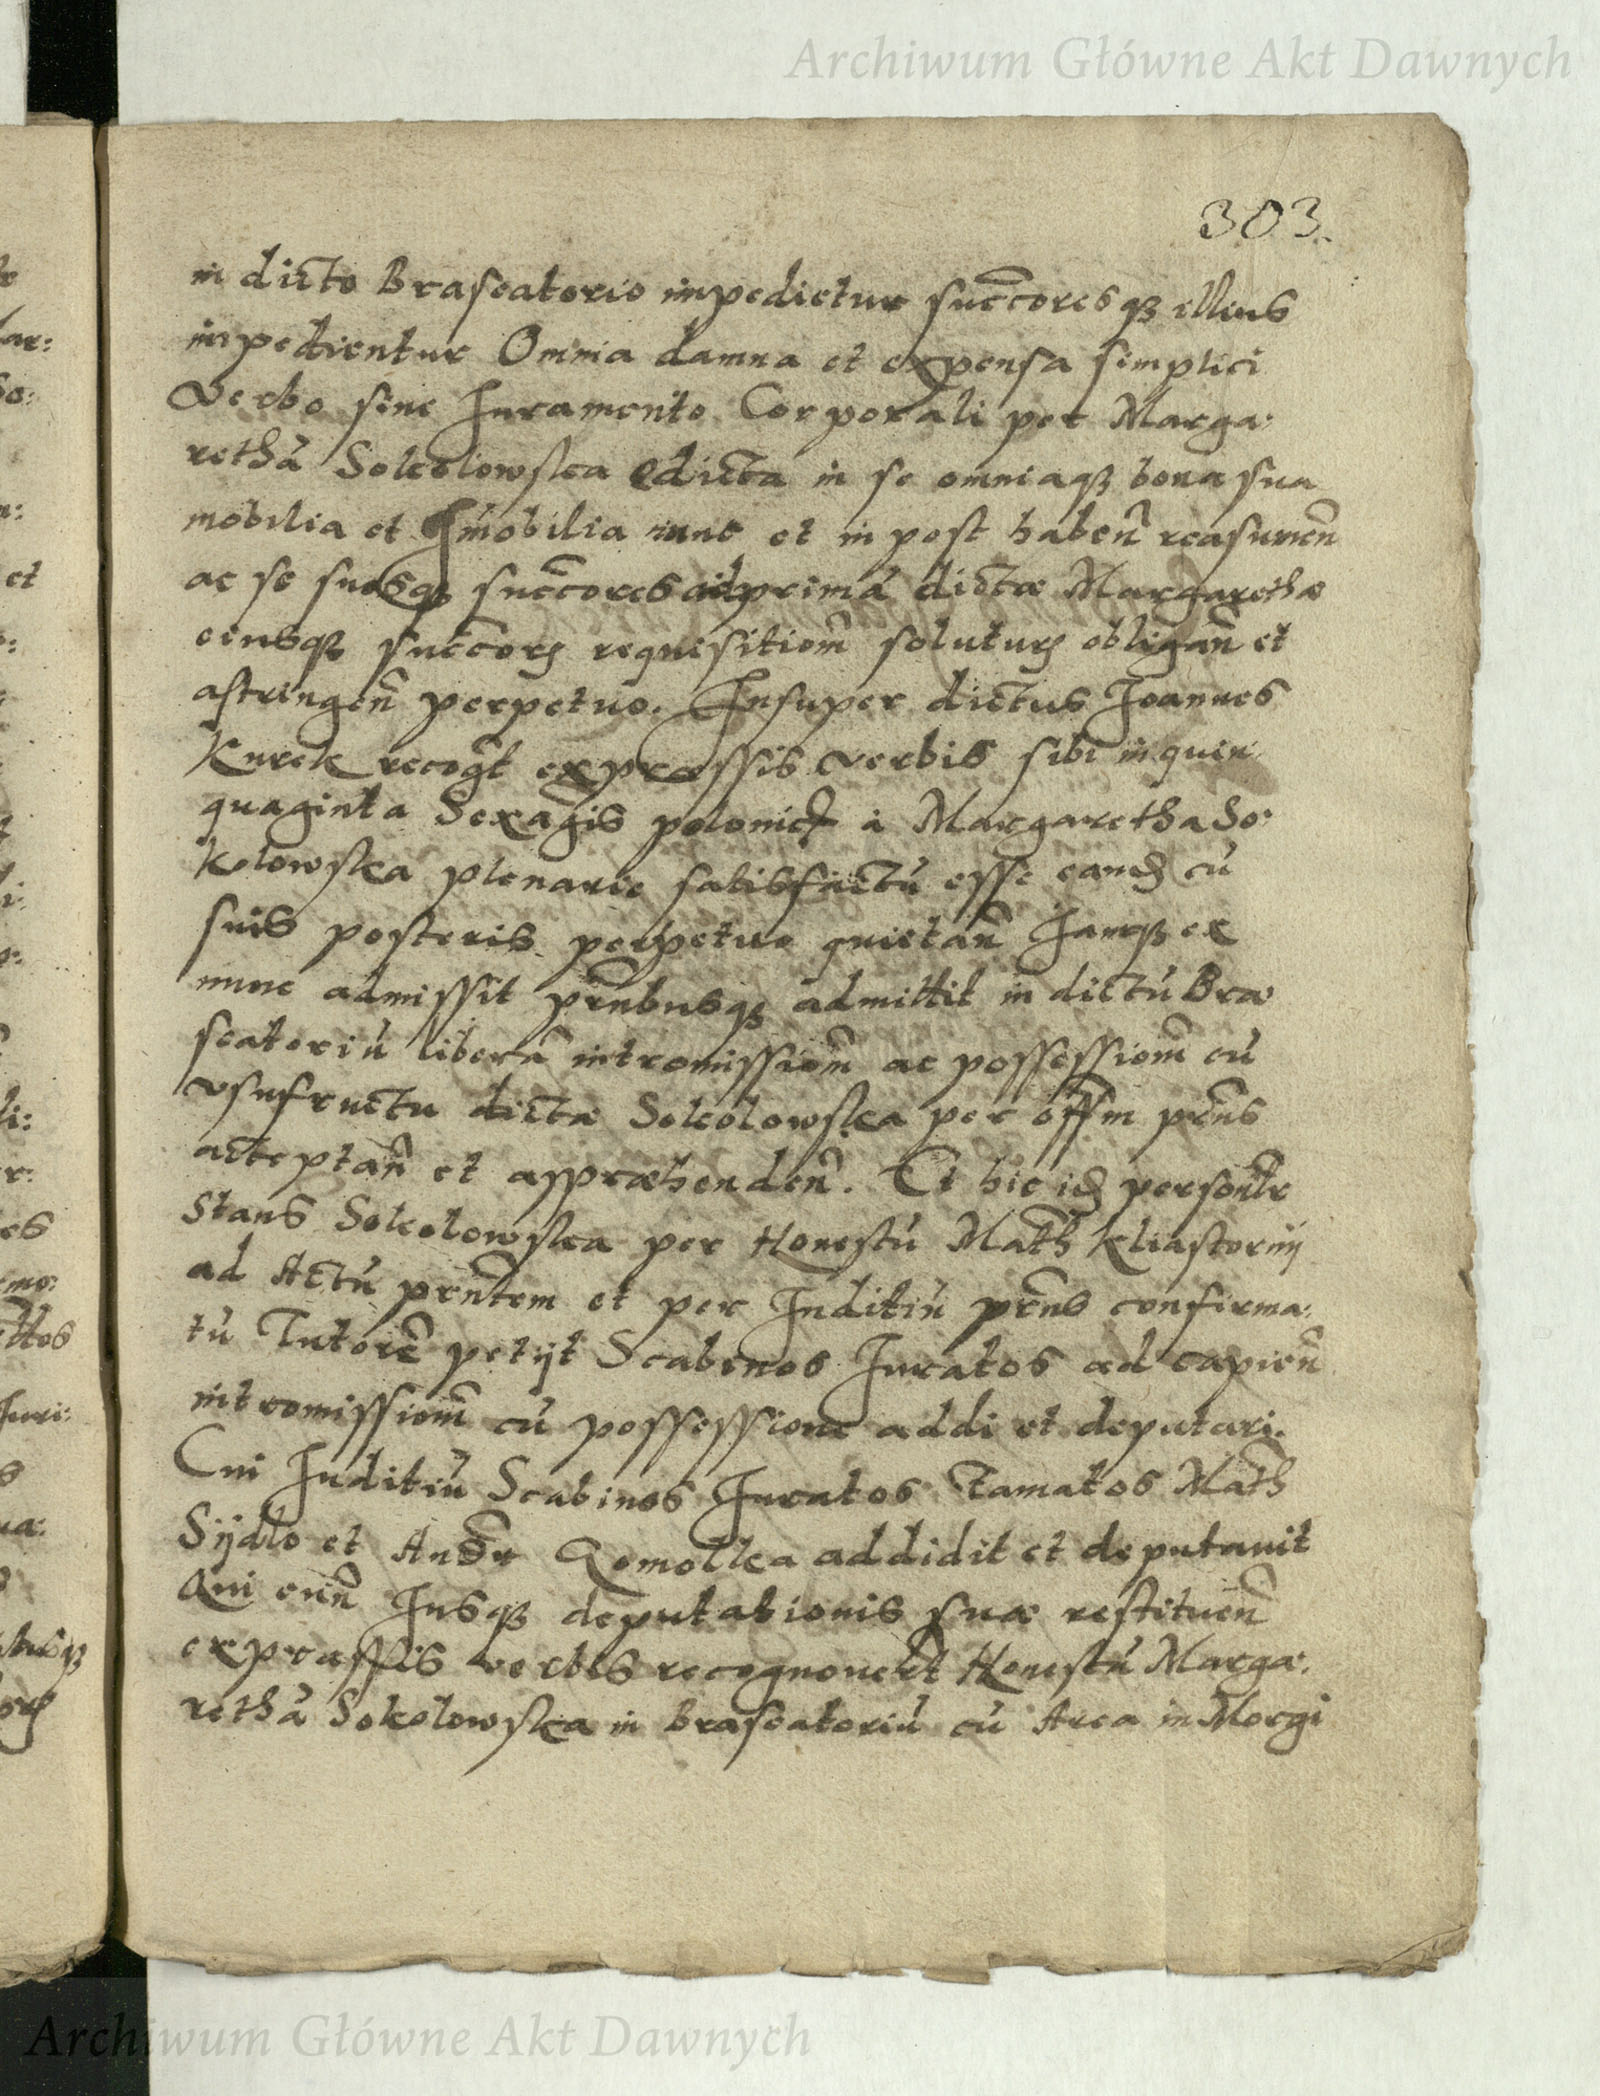 Archiwum Główne Akt Dawnych
303.
in dicto Braseatorio impedietur succores qz illius
impedientur Omnia damna et expensa simplici
verbo sine Juramento Corporali per Marga:
rethã Sokolowska edicta in se omniaqz bona sua
mobilia et Imobilia nunc et in post habeñ reasumeñ
ac se suosqz succores ad primã dictæ Margarethæ
eiusqz succorȝ requisitiom̃ soluturȝ obligañ et
astringeñ perpetuo. Insuper dictus Joannes
Kurek recogt expressis verbis sibi in quin:
quaginta Sexagis polonic à Margaretha So:
kolowska plenarie satisfactũ esse eand cũ
suis posteris perpetuo quietañ Jamqz ex
nunc admissit prñbusqz admittit in dictũ Bra
seatoriũ liberã intromissiom̃ ac possessiom̃ cũ
vsufructu dictæ Sokolowska per offm prñs
acceptañ et appræhendeñ. Et hic id personlr
stans Sokolowska per Honestũ Math Kliastornij
ad Actũ prñtem et per Juditiũ prñs confirma:
tũ Tutorẽ petijt Scabinos Juratos ad capieñ
intromissiom̃ cũ possessione addi et deputari.
Cui Juditiũ Scabinos Juratos famatos Math
Sijdlo et Andr Gomolka addidit et deputauit
Qui eun Jusqz deputationis suæ restitueñ
expræssis verbis recognouert Honestũ Marga:
rethã Sokolowska in Braseatoriũ cũ Area in Morgi
et
Archiwum Główne Akt Dawnych